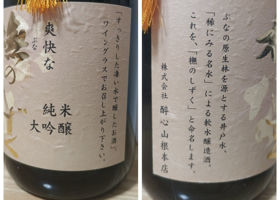 「すっきりした凄い水で醸したお酒」。
ワイングラスでお召し上がり下さい。
爽快な
ぶな
純米
大吟醸
ぶなの原生林を源とする井戸水。
「稀にみる名水」による軟水醸造酒。
これを、「橅のしずく」と命名します。
株式会社 醉心山根本店